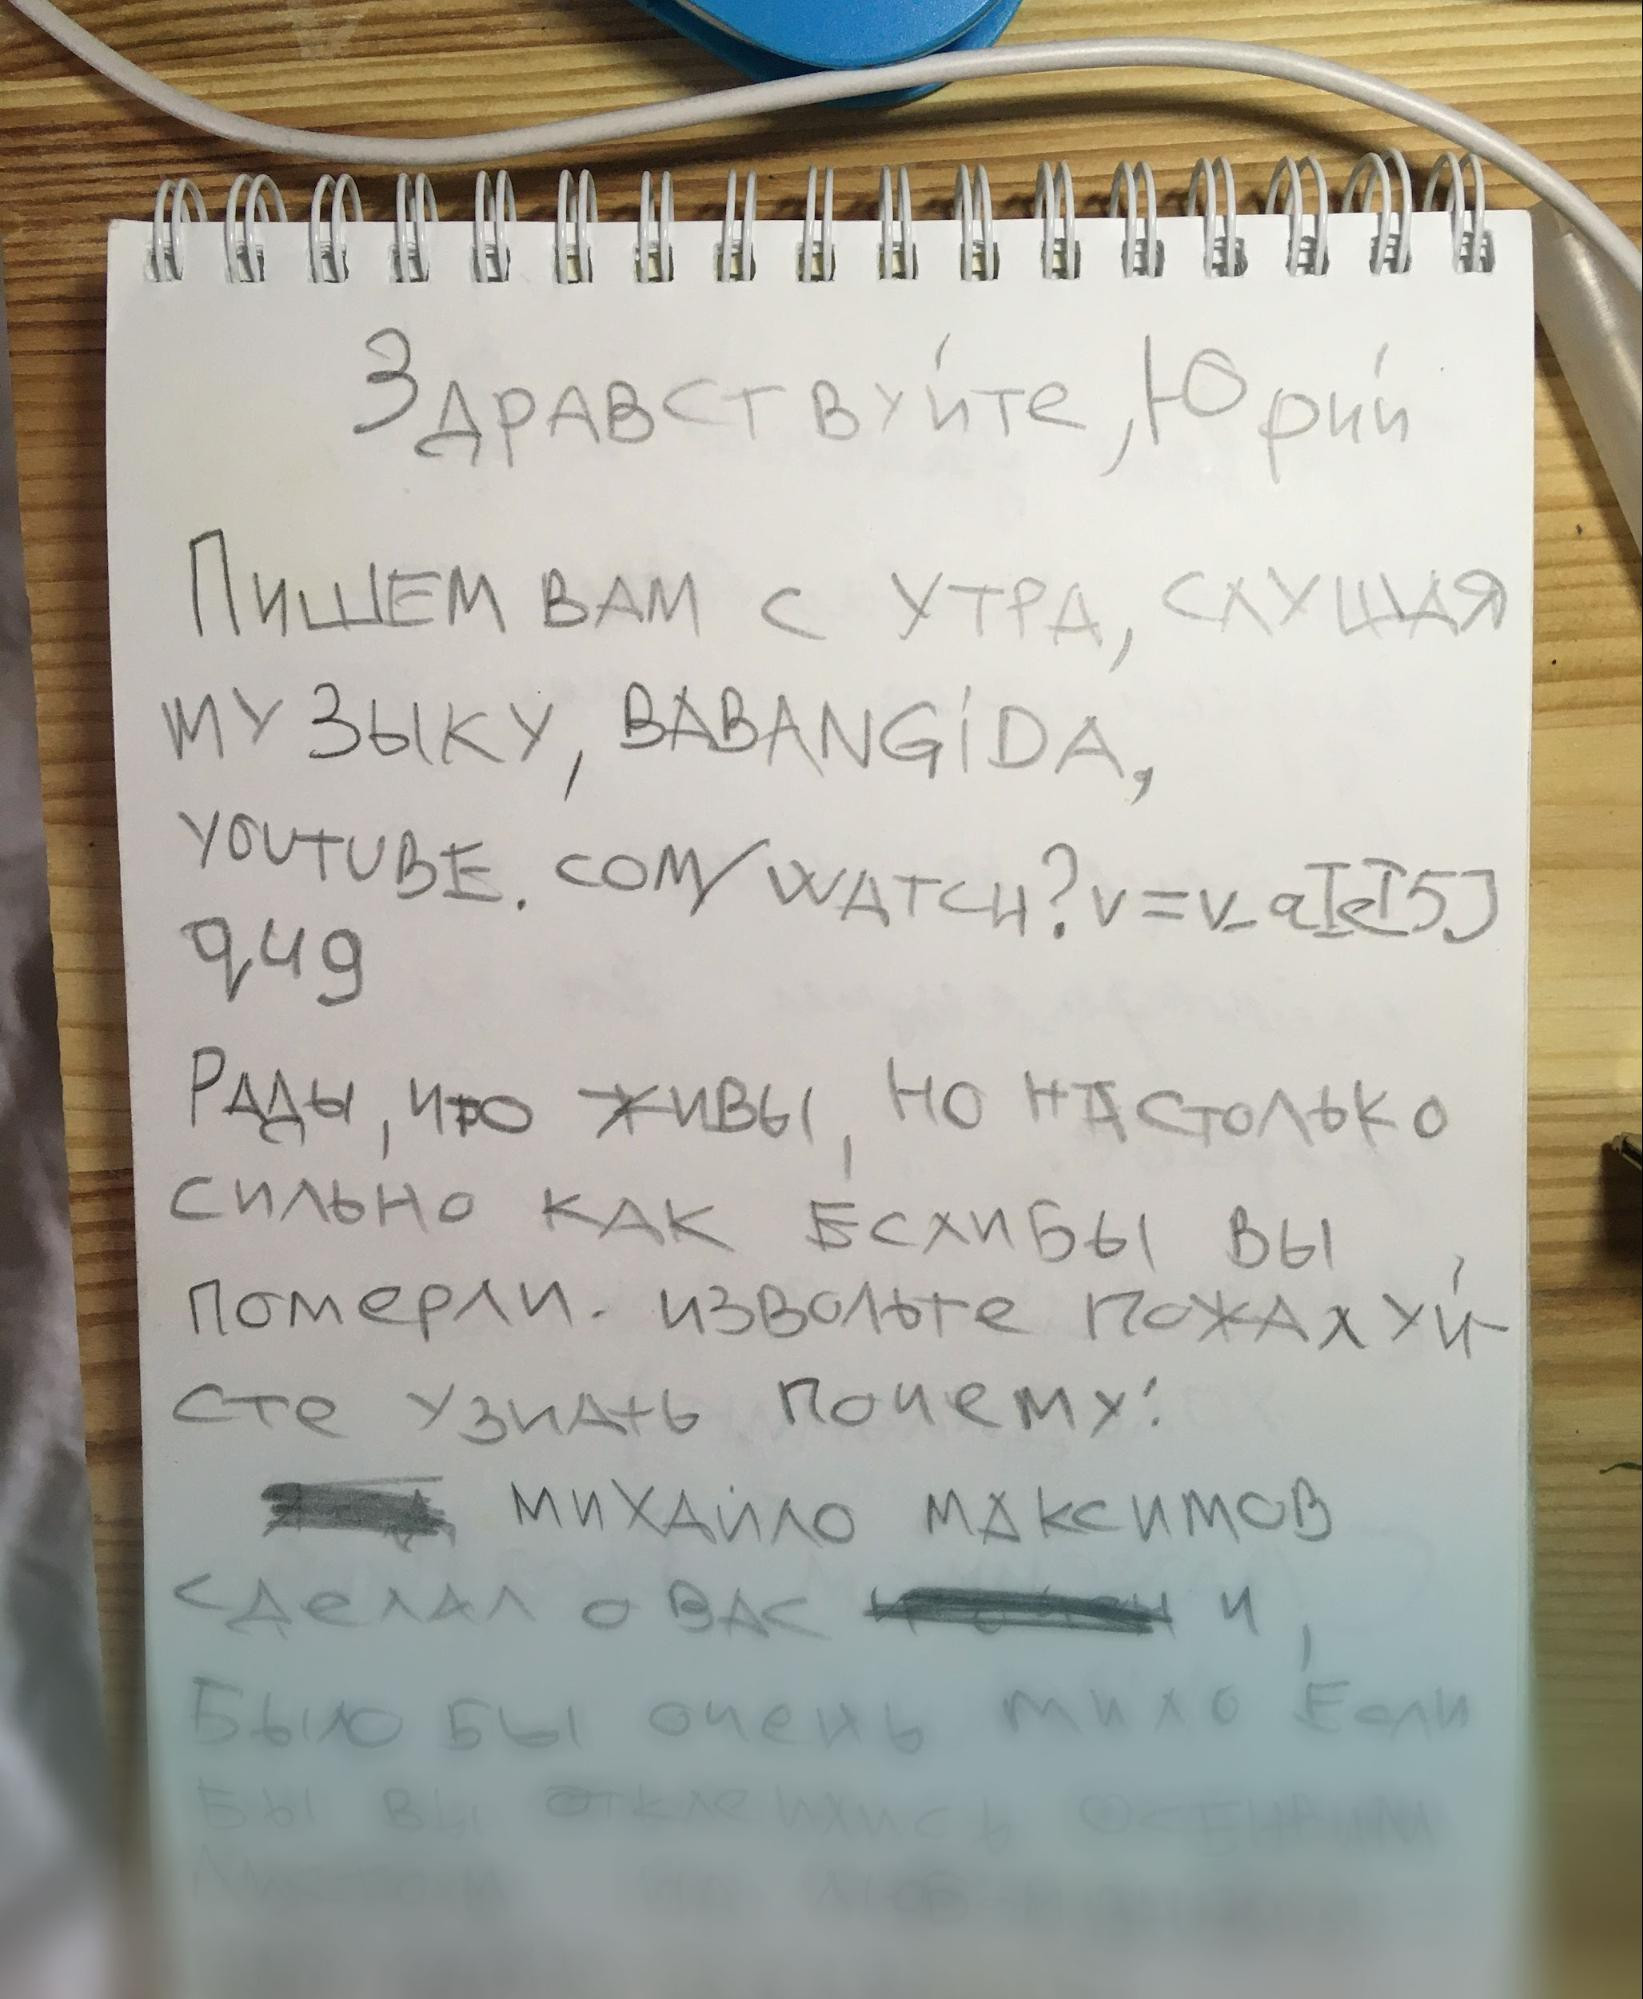 Здравствуйте, Юрий
Пишем вам с утра, слушая
музыку, BABANGiDA,
YOUTUBE.COM/WATCH?v=v_qIeI5J
q4g
Рады, что живы, но настолько
сильно как еслибы вы
померли. извольте пожалуй-
сте узнать почему:
михайло максимов
сделал о вас и,
Было бы очень мило если
бы вы откле осенним
листом